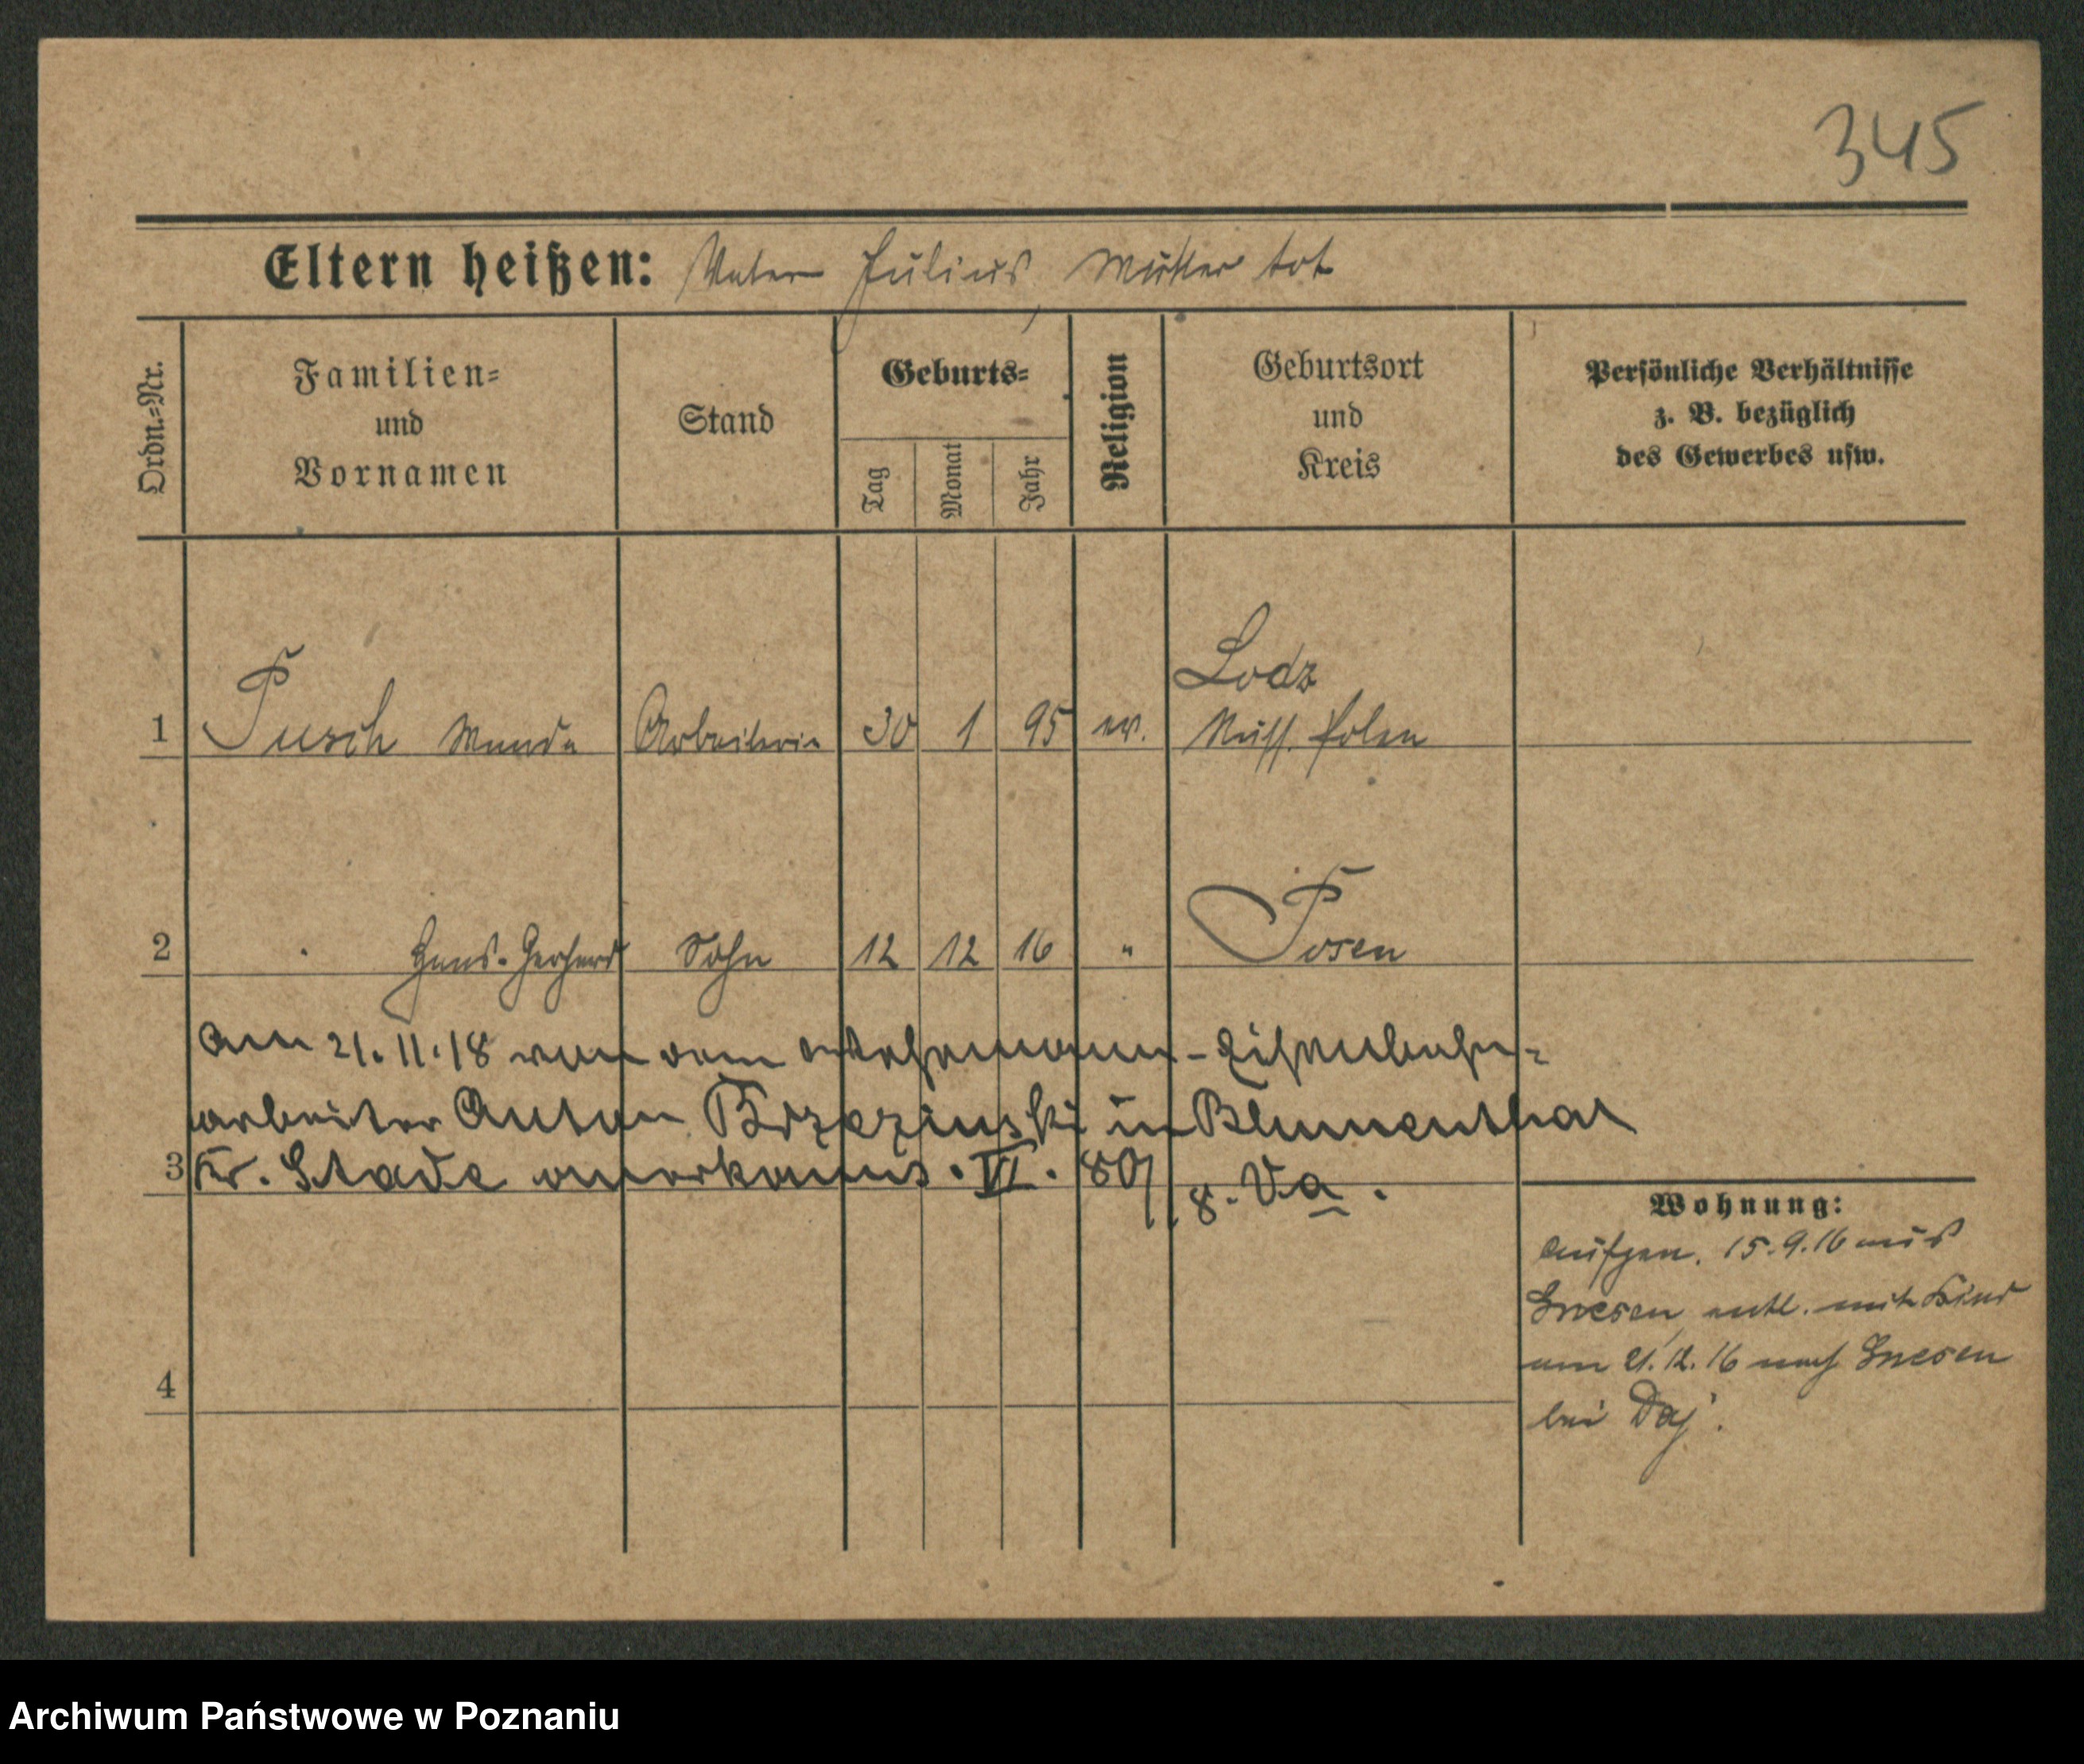 345
Eltern heißen: Vater Julius, Mutter tot
Ordn.=Nr.
Familien=
und
Vornamen
Stand
Geburts=
Tag
Monat
Jahr
Religion
Geburtsort
und
Kreis
Persönliche Verhältnisse
z. B. bezüglich
des Gewerbes usw.
Lodz
1 Pusch Wanda Arbeiterin 30 1 95 ev. Russ. Polen
2 Hans-Gerhard Sohn 12 12 16 " Posen
Am 21.11.18 von dem Eisenbahn=
arbeiter Anton Brzezinski in Blumenthal
3 Kr. Stade anerkannt. VI. 8. Va.
Wohnung:
Aufgen. 15.9.16 aus
Gnesen, entl. mit Kind
am 21.12.16 nach Gnesen
4
bei
Archiwum Państwowe w Poznaniu